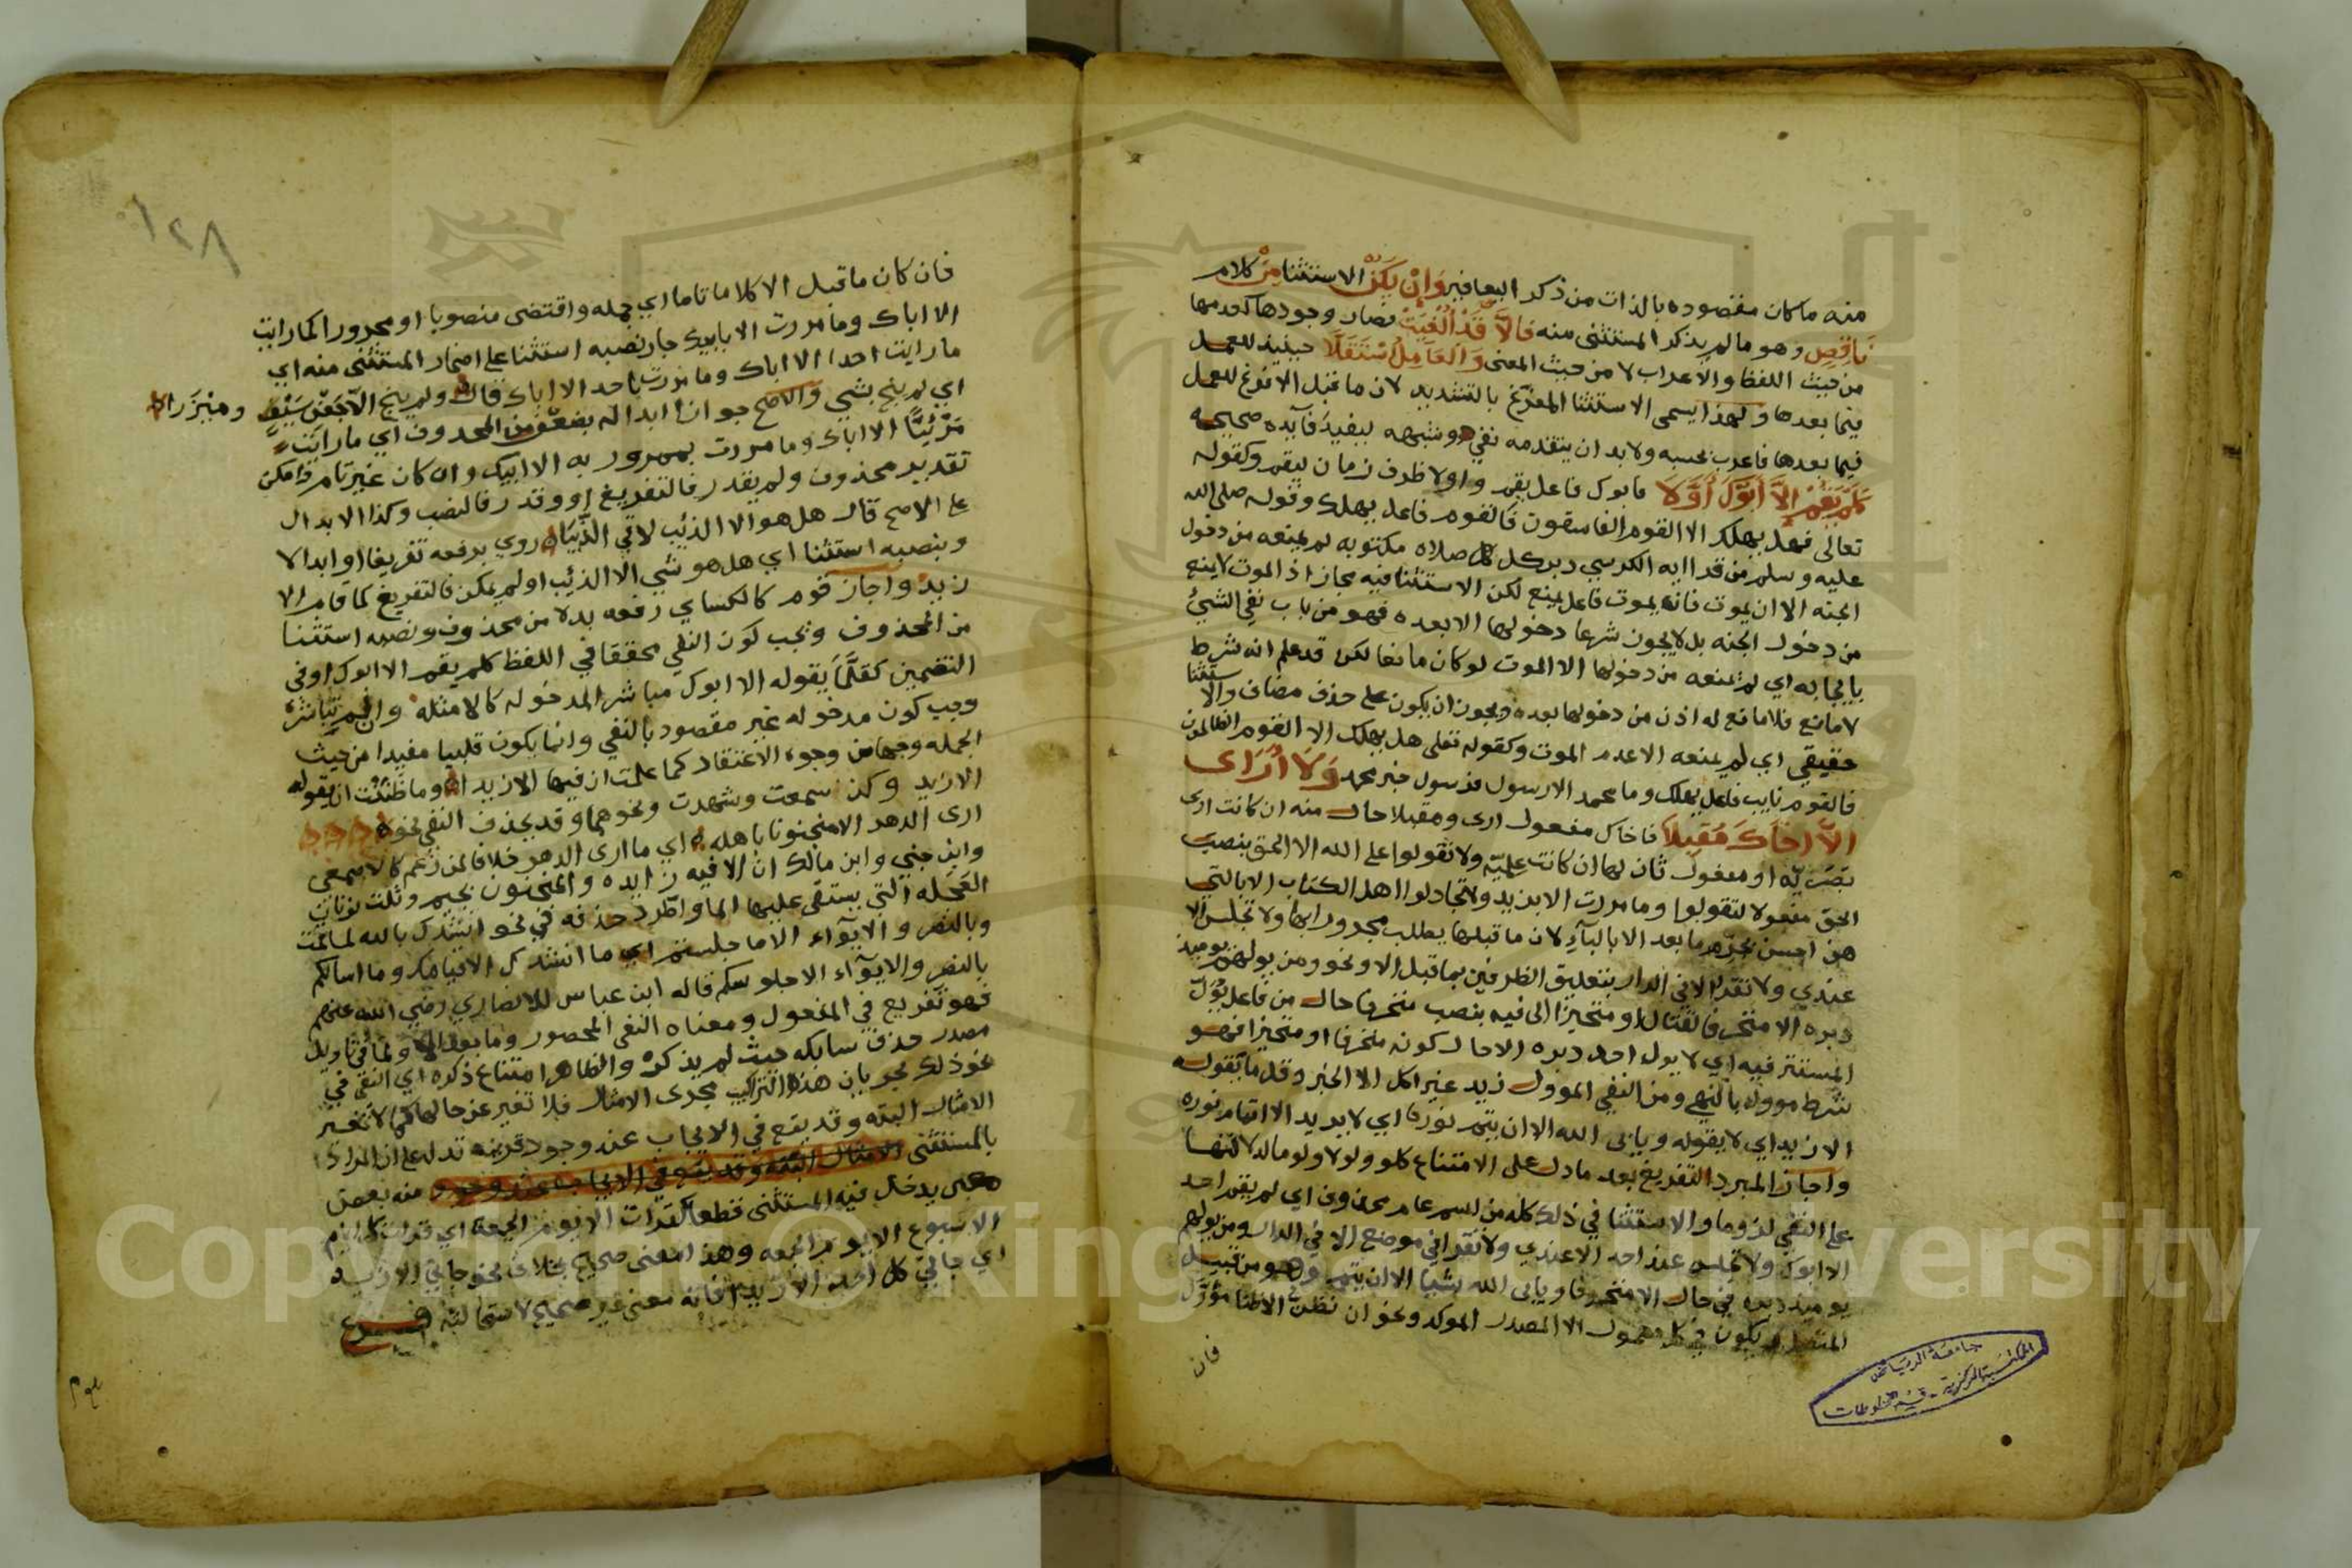 منه ما كان مقصوده بالذات من ذكر اليعافير وَإِنْ يَكُنْ الاستثنا مِنْ كلام
نَاقِصٍ وهو ما لم يذكر المستثنى منه فَالاَّ قَدْ أُلْغِيَتْ فصار وجودها كعدمها
من حيث اللفظ والاعراب لا من حيث المعنى وَالعَامِلُ اسْتَقَلَّا حينيذ للعمل
فيما بعدها ولهذا يسمى الاستثنا المفرّغ بالتشديد لان ما قبل الا تفرغ للعمل
فيما بعدها فاعرب بحسبه ولا بد ان يتقدمه نفي وشبهه ليفيد فآيده صحيحه
كَلَمْ يَقُمْ إِلاَّ أَبُوكَ أَوَّلاَ فابوك فاعل يقم واولا ظرف زمان ليقم وكقوله
تعالى فهل يهلك الا القوم الفاسقون فالقوم فاعل يهلك وقوله صلى الله
عليه وسلم من قرا ايه الكرسي دبر كل صلاه مكتوبه لم يمنعه من دخول
الجنه الا ان يموت فانه يموت فاعل يمنع لكن الاستثنا فيه مجاز اذ الموت لا يمنع
من دخول الجنه بل لا يجوز شرعا دخولها الا بعده فهو من باب نفي الشيُ
بايجابه اي لم يمنعه من دخولها الا الموت لو كان مانعا لكن قد علم انه شرط
لا مانع فلا مانع له اذن من دخولها بعده ويجوز ان يكون على حذف مضاف والاستثنا
حقيقي اي لم يمنعه الا عدم الموت وكقوله تعلى هل يهلك الا القوم الظالمون
فالقوم نايب فاعل يهلك وما محمد الا رسول فرسول خبر محمد وَلاَ أَرَاى
الاَّ اخَاكَ مُقبِلاَ فاخاك مفعول ارى ومقبلا حال منه ان كانت ارى
بَصَريّه او مفعول ثان لها ان كانت عِلميّه ولا تقولوا على الله الا الحق بنصب
الحق مفعولا لتقولوا وما مررت الا بزيد ولا تجادلوا اهل الكتاب الا بالتي
هي احسن بجرّ ما بعد الا بالبآء لان ما قبلها يطلب مجرورا بها ولا تجلس الا
عندي ولا تقعد الا في الدار بتعليق الظرفين بما قبل الا ونحو ومن يولهم يوميذ
دبره الا متحرفا لقتال او متحيزا الى فيه بنصب متحرفا حال من فاعل يُولّ
المستتر فيه اي لا يول احد دبره الا حال كونه متحرفا او متحيزا فهو
شرط موول بالنهي ومن النفي الموول زيد غير اكل الا الخبز وقل ما يقوله
الا زيد اي لا يقوله ويابى الله الا ان يتم نوره اي لا يريد الا اتمام نوره
واجاز المبرد التفريغ بعد ما دل على الامتناع كلو ولولا ولوما لدلالتها
على النفي لزوما والاستثنا في ذلك كله من اسم عام محذوف اي لم يقم احد
الا ابوك ولا تجلس عند احد الا عندي ولا تقعد في موضع الا في الدار ومن يولهم
يوميذ دبره في حال الا متحرفا ويابى الله شيا الا ان يتم وهو من قبيل
المتصل ويكون في كل معمول الا المصدر الموكد ونحو ان نظن الا ظنا مؤوّل
فان
١٢٨
فان كان ما قبل الا كلاما تاما اي جمله واقتضى منصوبا او مجرورا كما رايت
الا اباك وما مررت الا بابيك جاز نصبه استثنا على اضمار المستثنى منه اي
ما رايت احدا الا اباك وما مررت باحد الا اباك قال ولم ينج الا جفن سيف ومئزرا
اي لم ينج بشي والاصح جواز ابداله بضعف من المحذوف اي ما رايت
مَرْئيًّا الا اباك وما مررت بممرور به الا ابيك وان كان غير تام فامكن
تقدير محذوف ولم يقدر فالتفريغ او وقدر فالنصب وكذا الابدال
على الاصح قال هل هو الا الذئب لاقى الذِّيبا روي برفعه تفريغا او ابدالا
وبنصبه استثنا اي هل هو شي الا الذئب او لم يمكن فالتفريغ كما قام الا
زيد واجاز قوم كالكساي رفعه بدلا من محذوف ونصبه استثنا
من المحذوف ويجب كون النفي محققا في اللفظ كلم يقم الا ابوك او في
التضمين كقلَّمَا يقوله الا ابوك مباشر المدخوله كالامثله وان لم يباشر
وجب كون مدخوله غير مقصود بالنفي وانما يكون قلبيا مفيدا من حيث
الجمله وجها من وجوه الاعتقاد كما علمت ان فيها الا زيدا وما ظننت ان يقوله
الا زيد وكذا سمعت وشهدت ونحوهما وقد يحذف النفي نحو
ارى الدهر الا منجنونا باهله اي ما ارى الدهر خلافا لمن زعم كالاصمعي
وابن جني وابن مالك ان الا فيه زايده والمنجنون بجيم وثلث نونات
العَجَله التي يستقى عليها الما واطّرد حذفه في نحو انشدك بالله لما قمت
وبالنصر والايوآء الا ما جلستم اي ما انشدك الا قيامك وما اسالكم
بالنصر والايوآء الا جلوسكم قاله ابن عباس للانصار رضي الله عنهم
فهو تفريغ في المفعول ومعناه النفي المحصور وما بعد الا ولما في تاويل
مصدر حذف سابكه حيث لم يذكر والظاهر امتناع ذكره اي النفي في
نحو ذلك لجريان هذا التراكيب مجرى الامثال فلا تغير عن حالها كما لا تغير
الامثال البته وقد يقع في الايجاب عند وجود قرينه تدل على ان المراد
بالمستثنى الامثال البته وقد يقع في الايجاب عند وجود منه بعض
معين يدخل فيه المستثنى قطعا كقرات الا يوم الجمعة اي قرات كل ايام
الاسبوع الا يوم الجمعه وهذا معنى صحيح بخلاف نحو جاني الا زيد
اي جاني كل احد الا زيدا فانه معنى غير صحيح لاستحالته فرع
جامعة الرياض
المكتبة المركزية - قسم المخطوطات
Copyright © King Saud University